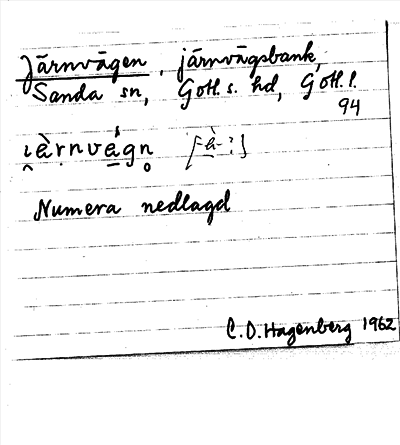 Järnvägen, järnvägsbank,
Sanda sn, Gotl. s. hd, Gotl. l.
94
i̯èrnvá̱gn̥ [-à̱-?]
Numera nedlagd
C. O. Hagenberg 1962